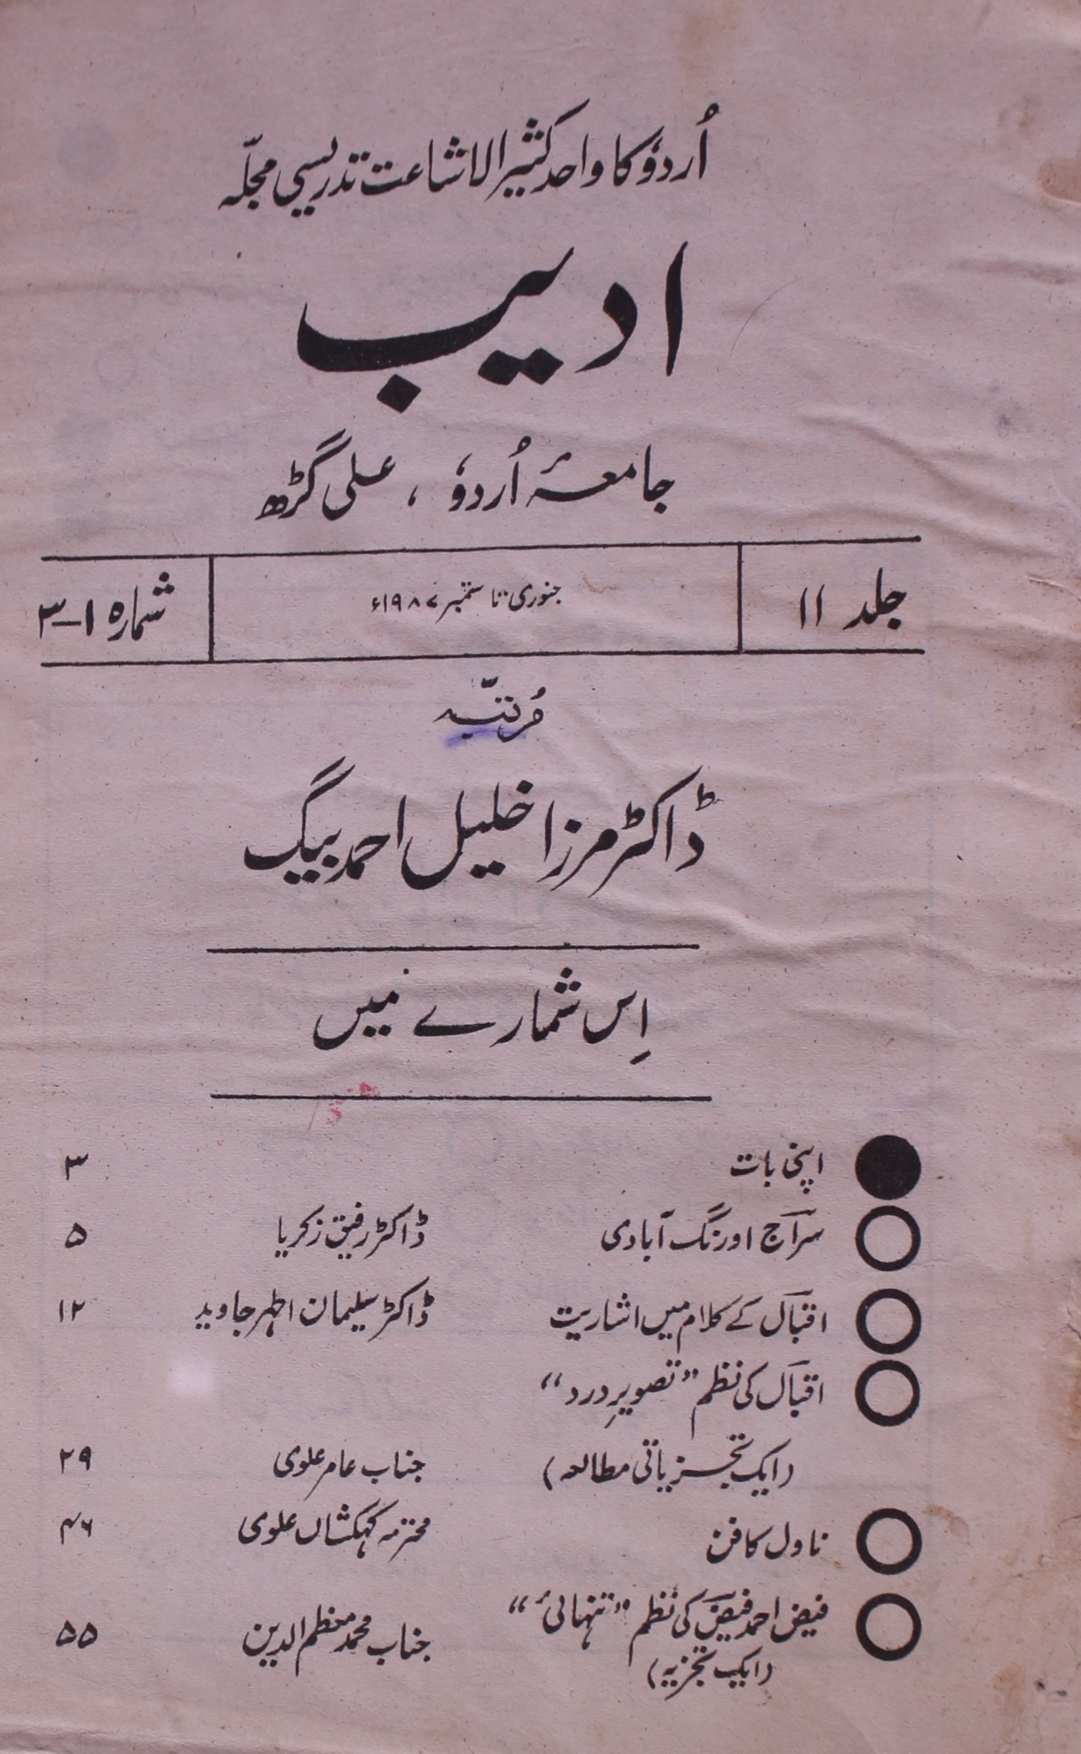 اُردوٗ کا واحد کثیر الاشاعت تدریسی مجلّہ
ادیب
جامعۂ اُردوٗ ، علی گڑھ
جلد ۱۱ جنوری تا ستمبر ۱۹۸۷ء شمارہ ۱-۳
مُرتبّہ
ڈاکٹر مرزا خلیل احمد بیگ
اِس شمارے میں
اپنی بات ۳
سراؔج اورنگ آبادی ڈاکٹر رفیق زکریا ۵
اقباؔل کے کلام میں اشاریت ڈاکٹر سلیمان اطہر جاوید ۱۲
اقباؔل کی نظم ”تصویرِ درد“
(ایک تجزیاتی مطالعہ) جناب عامر علوی ۲۹
ناول کا فن محترمہ کہکشاں علوی ۴۶
فیض احمد فیضؔ کی نظم ”تنہائی“
(ایک تجزیہ) جناب محمد معظم الدین ۵۵